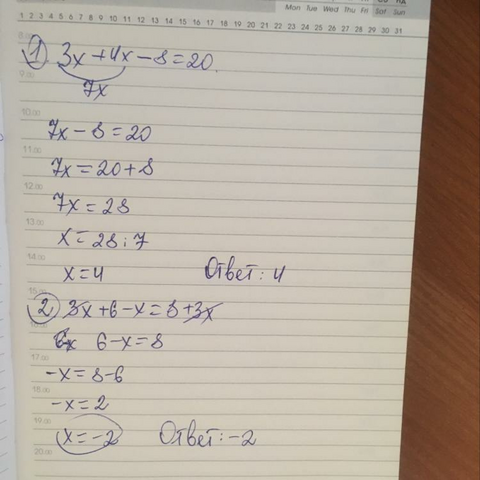 Mon Tue Wed Thu Fri Sat Sun
1 2 3 4 5 6 7 8 9 10 11 12 13 14 15 16 17 18 19 20 21 22 23 24 25 26 27 28 29 30 31
1) 3x + 4x - 8 = 20
9.00
7x
10.00
7x - 8 = 20
11.00
7x = 20 + 8
12.00
7x = 28
13.00
x = 28 : 7
14.00
x = 4 Ответ: 4
15.00
2) 3x + 6 - x = 8 + 3x
6 - x = 8
17.00
-x = 8 - 6
18.00
-x = 2
19.00
x = -2 Ответ: -2
20.00